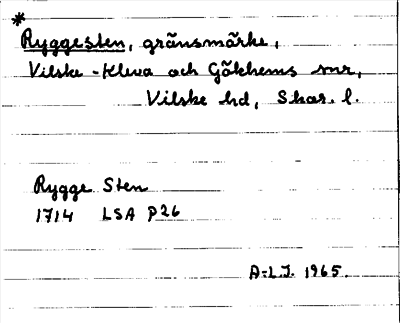 *
Ryggesten, gränsmärke,
Vilske-Kleva och Gökhems snr,
Vilske hd, Skar. l.
Rygge Sten
1714 LSA P26
A-L.J. 1965.